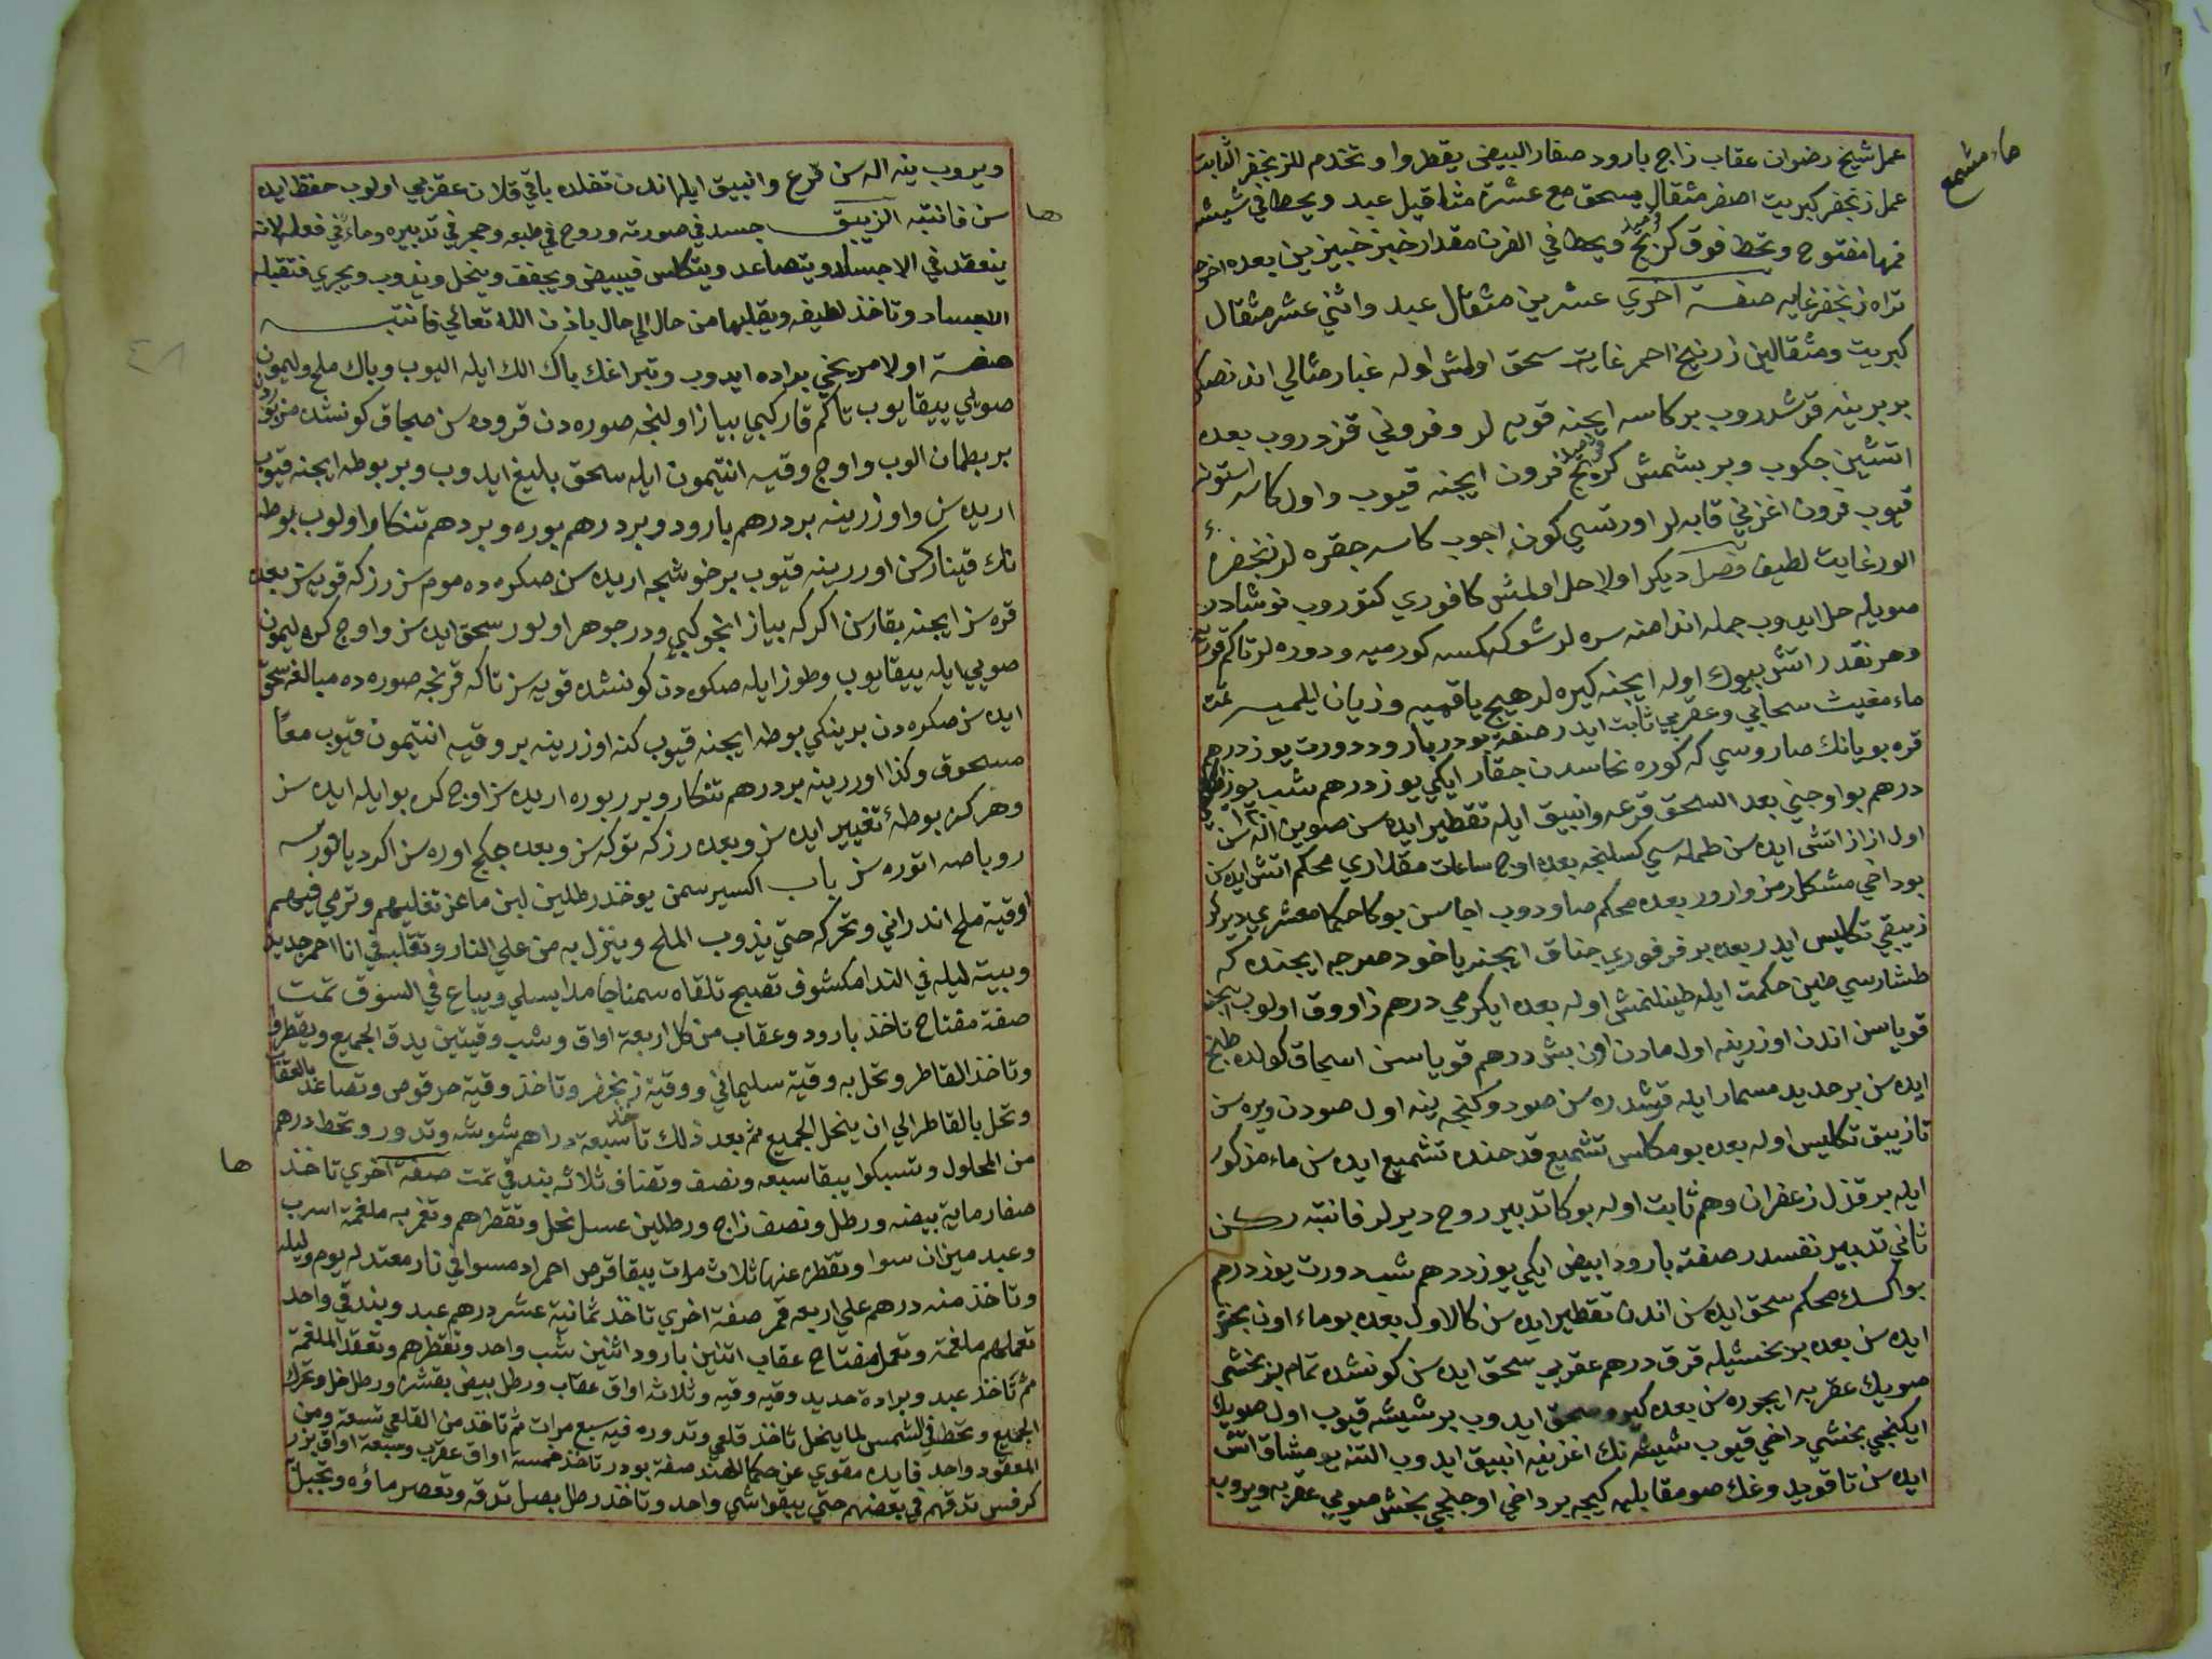 ماء مشمع
عمل شيخ رضوان عقاب زاج بارود صفار البيض يقطروا وتخدم للزنجفر الثابت
عمل زنجفر كبريت اصفر مثقال يسحق مع عشرة مثاقيل عبد ويحط في شيشه
فمها مفتوح وتحط فوق كربج ويحط في الفرن مقدار خبز خبيزين بعده اخرجه
تراه زنجفر غايه صفة اخري عشرين مثقال عبد واثني عشر مثقال
كبريت ومثقالين زرنيخ احمر غايت سحق اولمش اوله غبار مثالي اندنصكره
بر برينه قرشدروب بر كاسه ايچنه قويه لر وفروني قزدروب بعده
اتشين چكوب وبر بشمش كربج فرون ايچنه قيوب واول كاسه استونه
قيوب فرون اغزني قابه لر اورتسي كون اچوب كاسه چقره لر زنجفره
الور غايت لطيف فصل ديكر اولا حل اولمش كافوري كتوروب نوشادر
صويله حل ايدوب جمله اندامنه سره لر شوكه كمسه كورميه ودوره لر تاكم قوريه
وهر نقدر اتش بيوك اوله ايچنه كيره لر هيچ ياقميه وزيان ايلميه تمت
ماء مغيث سحابي وعقربي ثابت ايدر صفة بودر بارود دورت يوز درهم
قره بويانك صاروسي كه كوره نحاسدن چقار ايكي يوز درهم شب يوز
درهم بو اوچني بعد السحق قرعه وانبيق ايله تقطير ايده سن صوين اله سن
اول از از اتش ايده سن طمله سي كسلنجه بعده اوچ ساعت مقداري محكم اتش ايده سن
بو داخي مشكل رمز واردر بعده محكم صاودوب اچاسن بوكا حكما معشري ديرلر
زيبقي تكليس ايدر بعده بر فرفوري چناق ايچنه ياخود صرچه ايچنده كه
طشارسي طين حكمت ايله طينلنمش اوله بعده ايكرمي درهم زاووق اولوب ايچنه
قوياسن اندن اوزرينه اول مادن اون بش درهم قوياسن اسجاق كولده طبخ
ايده سن بر حديد مسمار ايله قرشدره سن صودوكنجه ينه اول صودن ويره سن
تا زيبق تكليس اوله بعده بو مكلس تشميع قدحنده تشميع ايده سن ماء مذكور
ايله بر قزل زعفران وهم ثابت اوله بوكا تدبير روح ديرلر فانتبه ركن
ثاني تدبير نفسدر صفته بارود ابيض ايكي يوز درهم شب دورت يوز درهم
بو اكسك محكم سحق ايده سن اندن تقطير ايده سن كالاول بعده بو ماء اون بخش
ايده سن بعده بر بخشيله قرق درهم عقربي سحق ايده سن كونشده تمام بر بخشي
صويك عقربه ايچوره سن بعده كيرو سحق ايدوب بر شيشه قيوب اول صويك
ايكنجي بخشي داخي قيوب شيشه نك اغزينه انبيق ايدوب التنه يومشاق اتش
ايده سن تا قويد وغك صو مقابليه كيچه بر داخي اوچنجي بخش صويي عقربه ويروب
ويروب ينه اله سن قرع وانبيق ايله اندن تفلده باقي قلان عقربي اولوب حفظ ايده
سن فانتبه الزيبق جسد في صورته وروح في طبعه وحجر في تدبيره وماء في فعله لانه
ينعقد في الاجساد ويتصاعد ويتكلس فيبيض ويجفف وينحل ويذوب ويجري فتقبله
الاجساد وتاخذ لطيفه ويقلبها من حال الي حال باذن الله تعالي فانتبه
صفة اولا مريخي براده ايدوب وتبراغك پاك الك ايله اليوب وپاك ملح وليمون
صويلي ييقايوب تاكم قار كبي بياز اولنجه صوره دن قروده سن صجاق كونشده مزبوردن
بر بطمان الوب واوچ وقيه انتيمون ايله سحق بليغ ايدوب وبر بوطه ايچنه قيوب
اريده سن واوزرينه بر درهم بارود وبر درهم بوره وبر دهم تنكار اولوب بوطه
نك قينار كن اوزرينه قيوب بر خوشجه اريده سن صكره ده موم سز رزكه قويه سن بعده
قره سز ايچنه بقارسن اكر كه بياز انجو كبي ودر جوهر اولور سحق ايده سز واوچ كره ليمون
صويي ايله ييقايوب وطوز ايله صكره دن كونشده قويه سز تا كه قرنجه صوره ده مبالغه سحق
ايده سن صكره دن بر ينكي بوطه ايچنه قيوب كنه اوزرينه بر وقيه انتيمون قيوب معًا
مسحوق وكذا اوزرينه بر درهم تنكار وبر بوره اريده سز اوچ كره بو ايله ايده سز
وهر كره بوطهٔ تغيير ايده سز وبعده رزكه توكه سز وبعده چكج اوره سن اكر ديانورسه
روباصه اتوره سز باب اكسير سمن يوخذ رطلين لبن ماعز تغليهم وترمي فيهم
اوقية ملح اندراني وتحركه حتي يذوب الملح وينزل به من علي النار وتقلبه في انا احمر جديد
وبيته ليله في الندا مكشوف تصبح تلقاه سمنا جامدا يسلي ويباع في السوق تمت
صفة مفتاح تاخذ بارود وعقاب من كل اربعة اواق وشب وقيتين يدق الجميع ويقطروا
وتاخذ القاطر وتحل به وقية سليماني ووقية زنجفر وتاخذ وقية مرقوص وتصاعد بالعقاب
وتحل بالقاطر الي ان ينحل الجميع ثم بعد ذلك تاخذ سبعة دراهم شوشه وتدور وتحط درهم
من المحلول وتسبكوا يبقا سبعه ونصف وتضاف ثلاثه بندقي تمت صفة اخري تاخذ
صفار ماية بيضه ورطل ونصف زاج ورطلين عسل نحل وتقطرهم وتغمر به ملغمة اسرب
وعبد ميزان سوا وتقطره عنها ثلاث مرات يبقا قرص احمر ادمسوا في نار معتدله يوم وليله
وتاخذ منه درهم علي اربعه قمر صفة اخري تاخذ ثمانية عشر درهم عبد وبندقي واحد
تعملهم ملغمة وتعمل مفتاح عقاب اثنين بارود اثنين شب واحد وتقطرهم وتعقد الملغمة
ثم تاخذ عبد وبرادة حديد وقيه وقيه وثلاثه اواق عقاب ورطل بيض بقشره ورطل خل وتحرك
الجميع وتحط في الشمس لما ينحل تاخذ قلعي وتدوره فيه سبع مرات ثم تاخذ من القلعي تسعة ومن
المعقود واحد فايده مقوي عن حكما الهند صفة بودر تاخذ خمسة اواق عقرب وسبعة اواق بزر
كرفس تدقهم في بعضهم حتي يبقوا شي واحد وتاخذ رطل بصل تدقه وتعصر ماؤه وتجبل
ها
ها